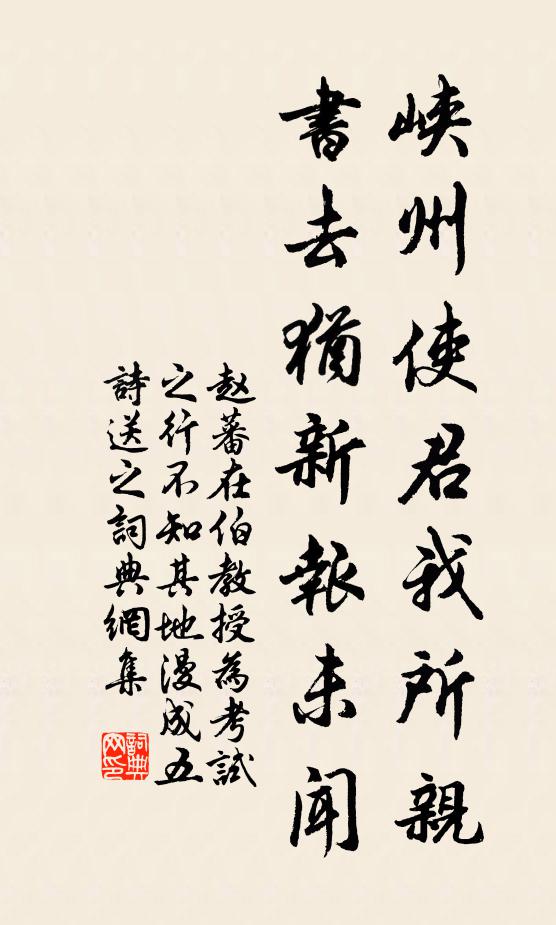 峽州使君我所親
書去猶新報未聞
赵蕃在伯教授為考試
之行不知其地漫成五
詩送之詞典網集
詞典网印